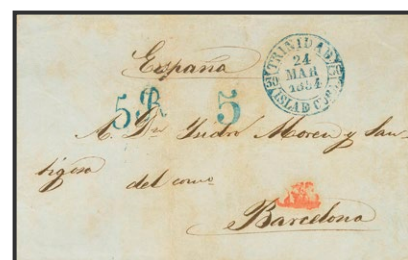 España
TRINIDAD
24
MAR
1854
30
ISLA DE CUBA
5R 5
A Dn Isidro Moren y San-
del corro
Barcelona